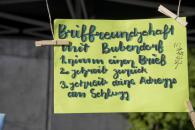 Briffreundschaft
mit Bubendorf
1. nimm einen Brief
2. schreib zurück
3. schreib deine Adresse
am Schluss